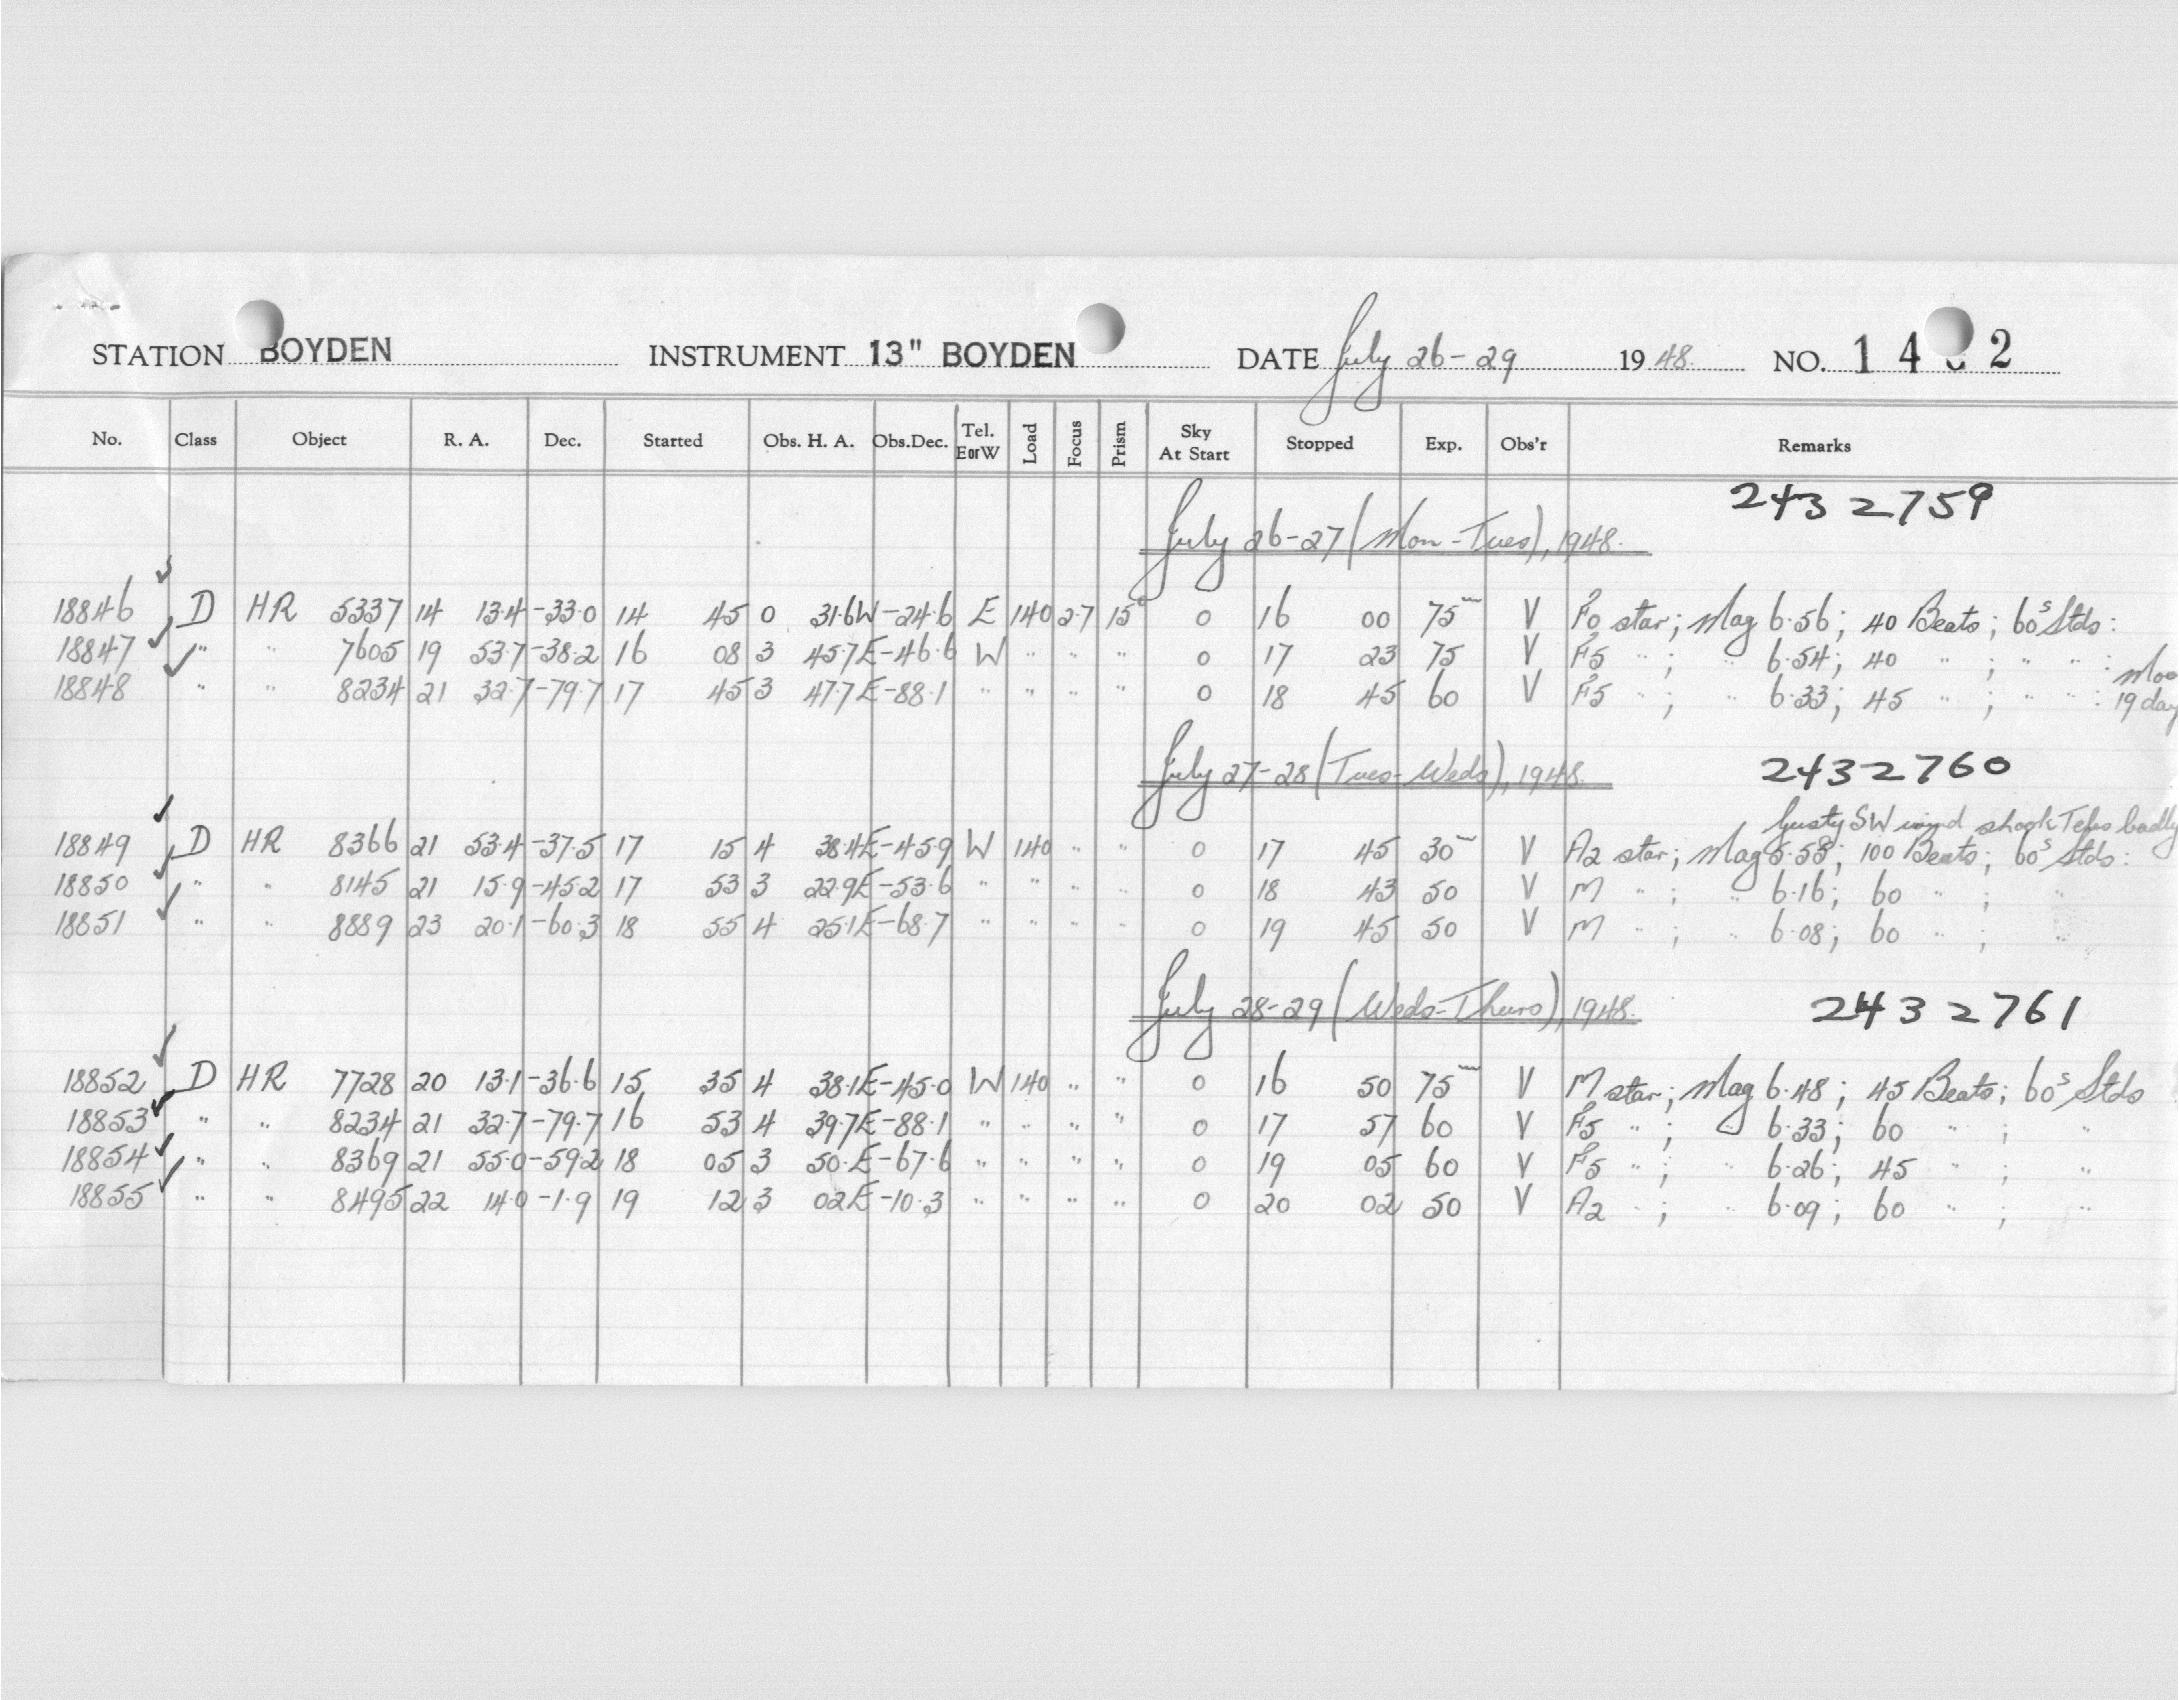 STATION BOYDEN INSTRUMENT 13" BOYDEN DATE July 26-29 1948. NO. 14 2
No. Class Object R. A. Dec. Started Obs. H. A. Obs.Dec. Tel. EorW Load Focus Prism Sky At Start Stopped Exp. Obs'r Remarks
July 26-27 (Mon-Tues), 1948. 2432759
18846 D HR 5337 14 13.4 -33.0 14 45 0 31.6W -24.6 E 140 2.7 15° 0 16 00 75m V F0 star; Mag 6.56; 40 Beats; 60s Stds:
18847 " " 7605 19 53.7 -38.2 16 08 3 45.7E -46.6 W " " " 0 17 23 75 V F5 " ; " 6.54; 40 " ; " " :
18848 " " 8234 21 32.7 -79.7 17 45 3 47.7E -88.1 " " " " 0 18 45 60 V F5 " ; " 6.33; 45 " ; " " : 19 day
July 27-28 (Tues-Weds), 1948. 2432760
Gusty SW wind shook Teles badly
18849 D HR 8366 21 53.4 -37.5 17 15 4 38.4E -45.9 W 140 " " 0 17 45 30m V A2 star; Mag 5.58; 100 Beats; 60s Stds:
18850 " " 8145 21 15.9 -45.2 17 53 3 22.9E -53.6 " " " " 0 18 43 50 V M " ; " 6.16; 60 " ; "
18851 " " 8889 23 20.1 -60.3 18 55 4 25.1E -68.7 " " " " 0 19 45 50 V M " ; " 6.08; 60 " ; "
July 28-29 (Weds-Thurs), 1948. 2432761
18852 D HR 7728 20 13.1 -36.6 15 35 4 38.1E -45.0 W 140 " " 0 16 50 75m V M star; Mag 6.48; 45 Beats; 60s Stds
18853 " " 8234 21 32.7 -79.7 16 53 4 39.7E -88.1 " " " " 0 17 57 60 V F5 " ; " 6.33; 60 " ; "
18854 " " 8369 21 55.0 -59.2 18 05 3 50.E -67.6 " " " " 0 19 05 60 V F5 " ; " 6.26; 45 " ; "
18855 " " 8495 22 14.0 -1.9 19 12 3 02E -10.3 " " " " 0 20 02 50 V A2 " ; " 6.09; 60 " ; "